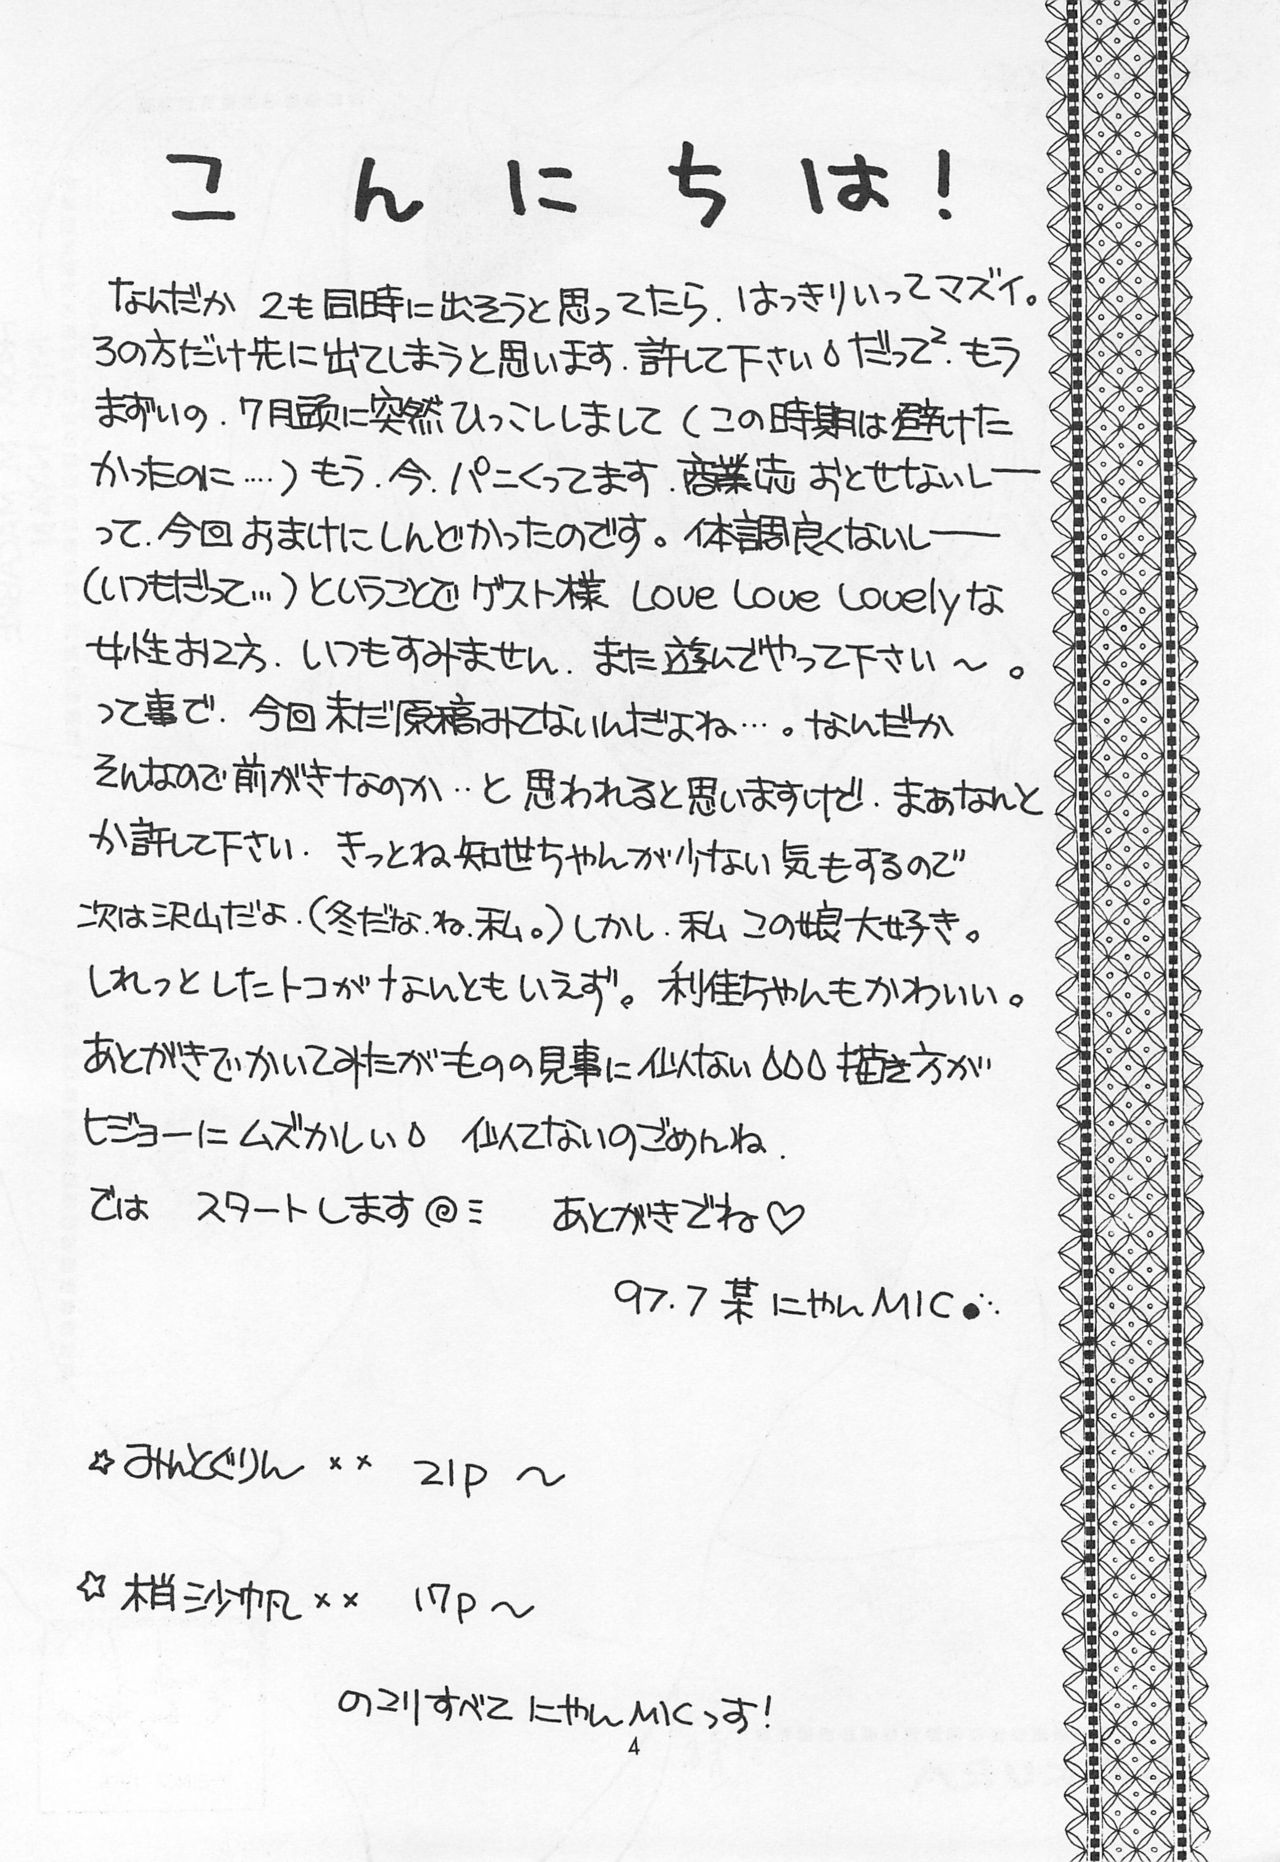 こんにちは!
なんだか 2も同時に出そうと思ってたら、はっきりいってマズイ。
3の方だけ先に出てしまうと思います.許して下さい だって².もう
まずいの.7月頭に突然ひっこししまして(この時期は避けた
かったのに‥‥)もう.今.パニくってます.商業誌おとせないしー
って.今回おまけにしんどかったのです。体調良くないしー
(いつもだって…)ということでゲスト様 Love Love Lovelyな
女性お2方.いつもすみません.また遊んでやって下さい〜。
って事で.今回未だ原稿みてないんだよね…。なんだか
そんなので前がきなのか‥と思われると思いますけど.まぁなんと
か許して下さい.きっとね知世ちゃんが少ない気もするので
次は沢山だよ.(冬だな.ね.私。)しかし.私この娘大好き。
しれっとしたトコがなんともいえず。利佳ちゃんもかわいい。
あとがきでかいてみたがものの見事に似ない 描き方が
ヒジョーにムズかしい 似てないのごめんね.
では スタートします@ミ あとがきでね♡
97.7 某 にゃんMIC
☆みんとぐりん ×× 21p 〜
☆梢 沙帆 ×× 17p 〜
のこりすべて にゃんMICっす!
4